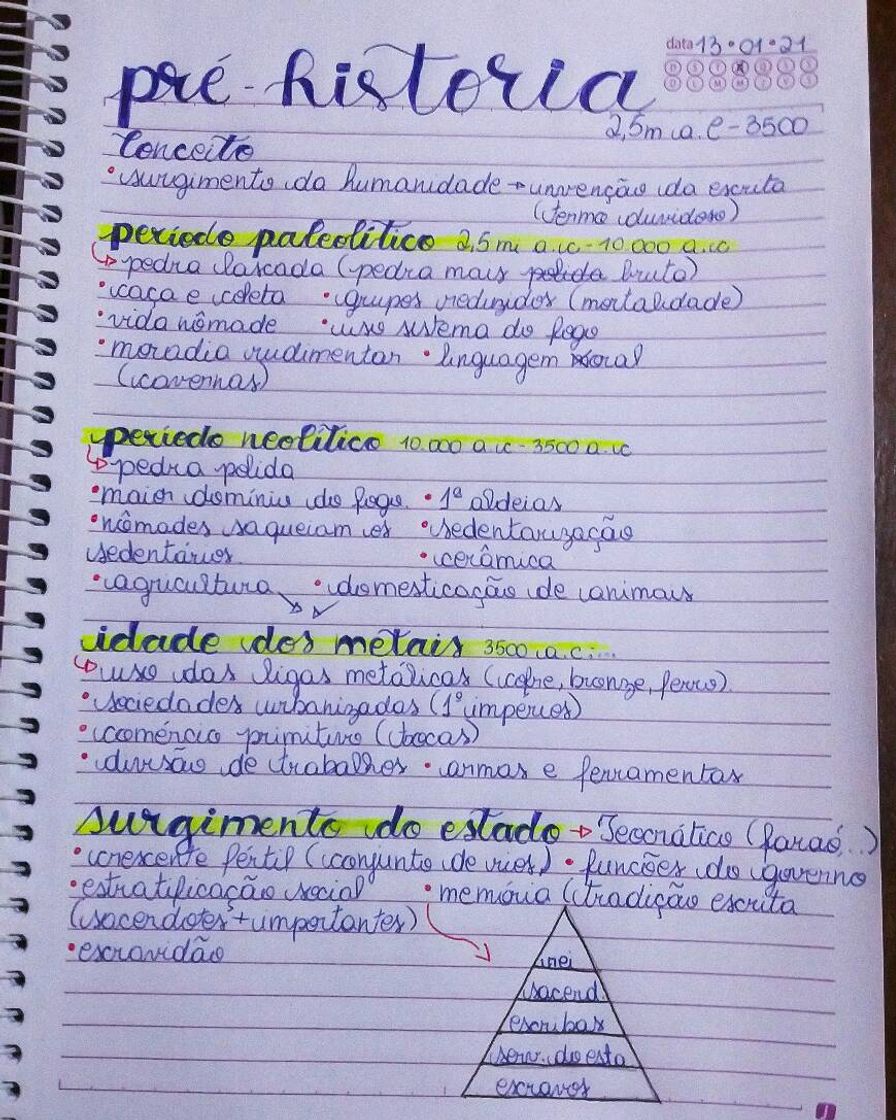 data 13·01·21
D S T Q Q S S
D L M M J V S
pré-historia
2,5m a.C - 3500
Conceito
•surgimento da humanidade → invenção da escrita
(termo duvidoso)
período paleolítico 2,5mi a.c - 10.000 a.c
↳ pedra lascada (pedra mais polida bruta)
•caça e coleta •grupos reduzidos (mortalidade)
•vida nômade •uso sistema do fogo
•moradia rudimentar •linguagem oral
(cavernas)
período neolítico 10.000 a.c - 3500 a.c
↳ pedra polida
•maior domínio do fogo. •1ª aldeias
•nômades saqueiam os •sedentarização
sedentários. •cerâmica
•agricultura •domesticação de animais
idade dos metais 3500 a.c....
↳ uso das ligas metálicas (cobre, bronze, ferro).
•sociedades urbanizadas (1º impérios)
•comércio primitivo (trocas)
•divisão de trabalhos •armas e ferramentas
surgimento do estado → Teocrático (faraó...)
•crescente fértil (conjunto de rios) •funcões do governo
•estratificação social •memória (tradição escrita
(sacerdotes + importantes)
•escravidão
rei
sacerd.
escribas
serv. do esta
escravos